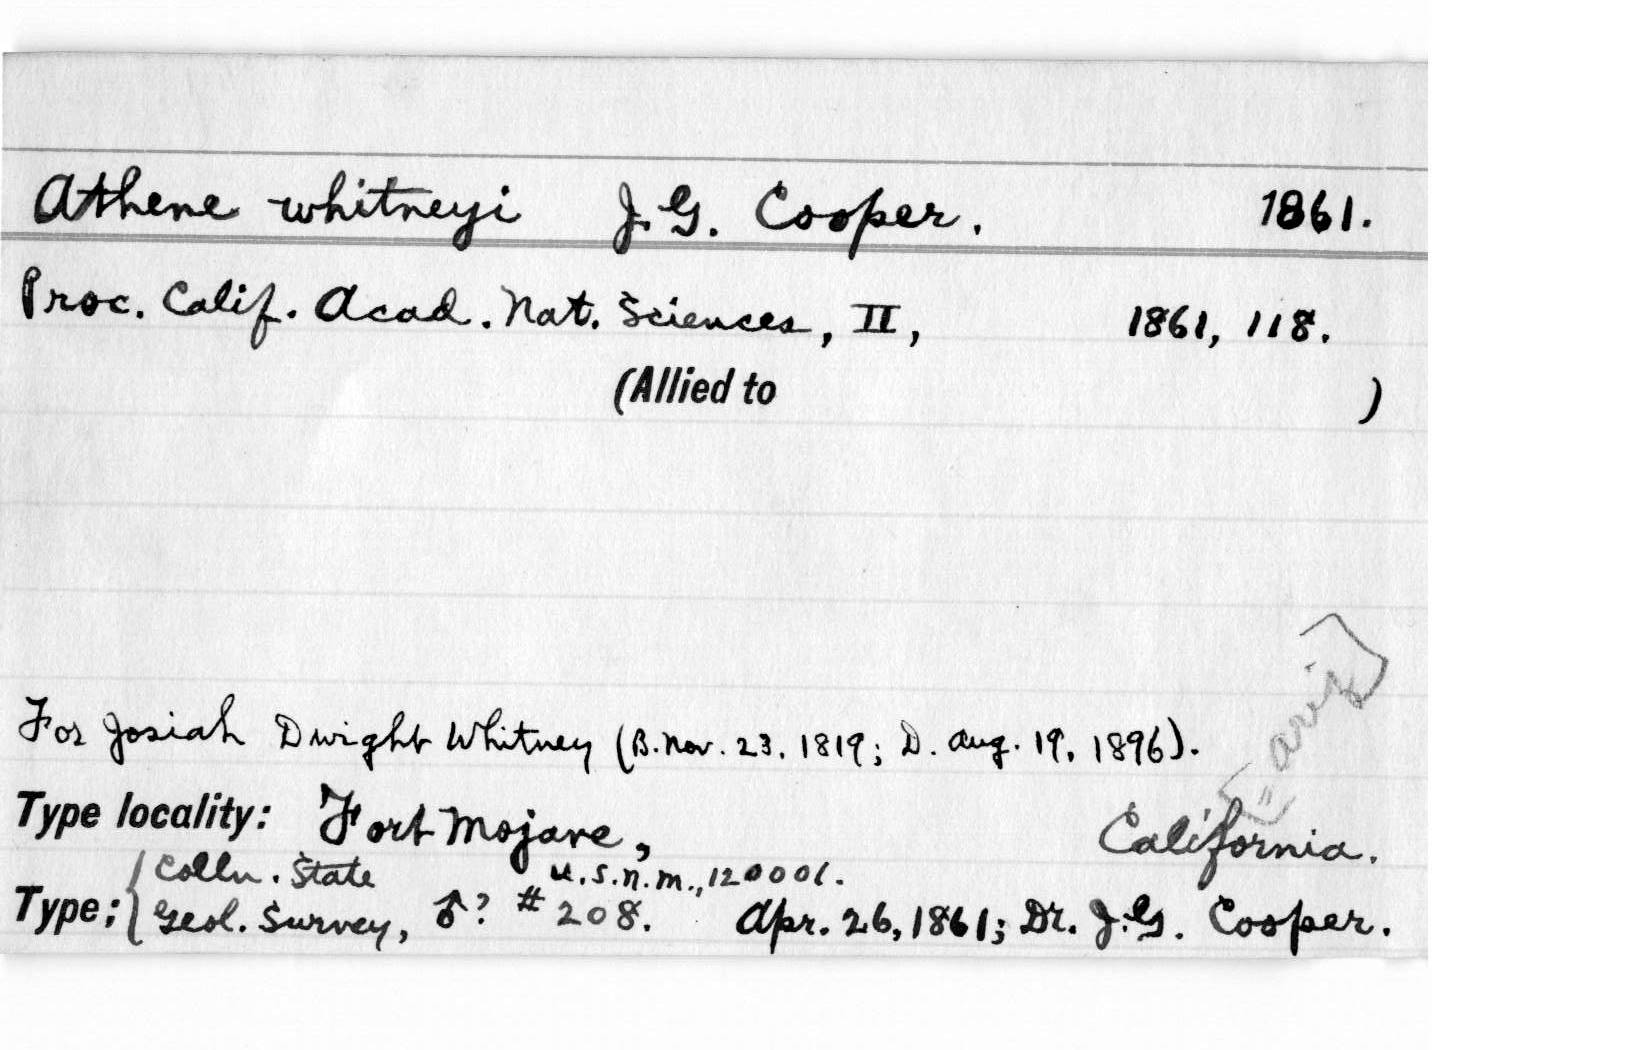 Athene whitneyi J. G. Cooper. 1861.
Proc. Calif. Acad. Nat. Sciences, II, 1861, 118.
(Allied to )
For Josiah Dwight Whitney (B. Nov. 23, 1819; D. Aug. 19, 1896).
[= Ariz]
Type locality: Fort Mojave, California.
Colln. State U.S.N.M., 120001.
Type: Geol. Survey, ♂? # 208. Apr. 26, 1861; Dr. J. G. Cooper.